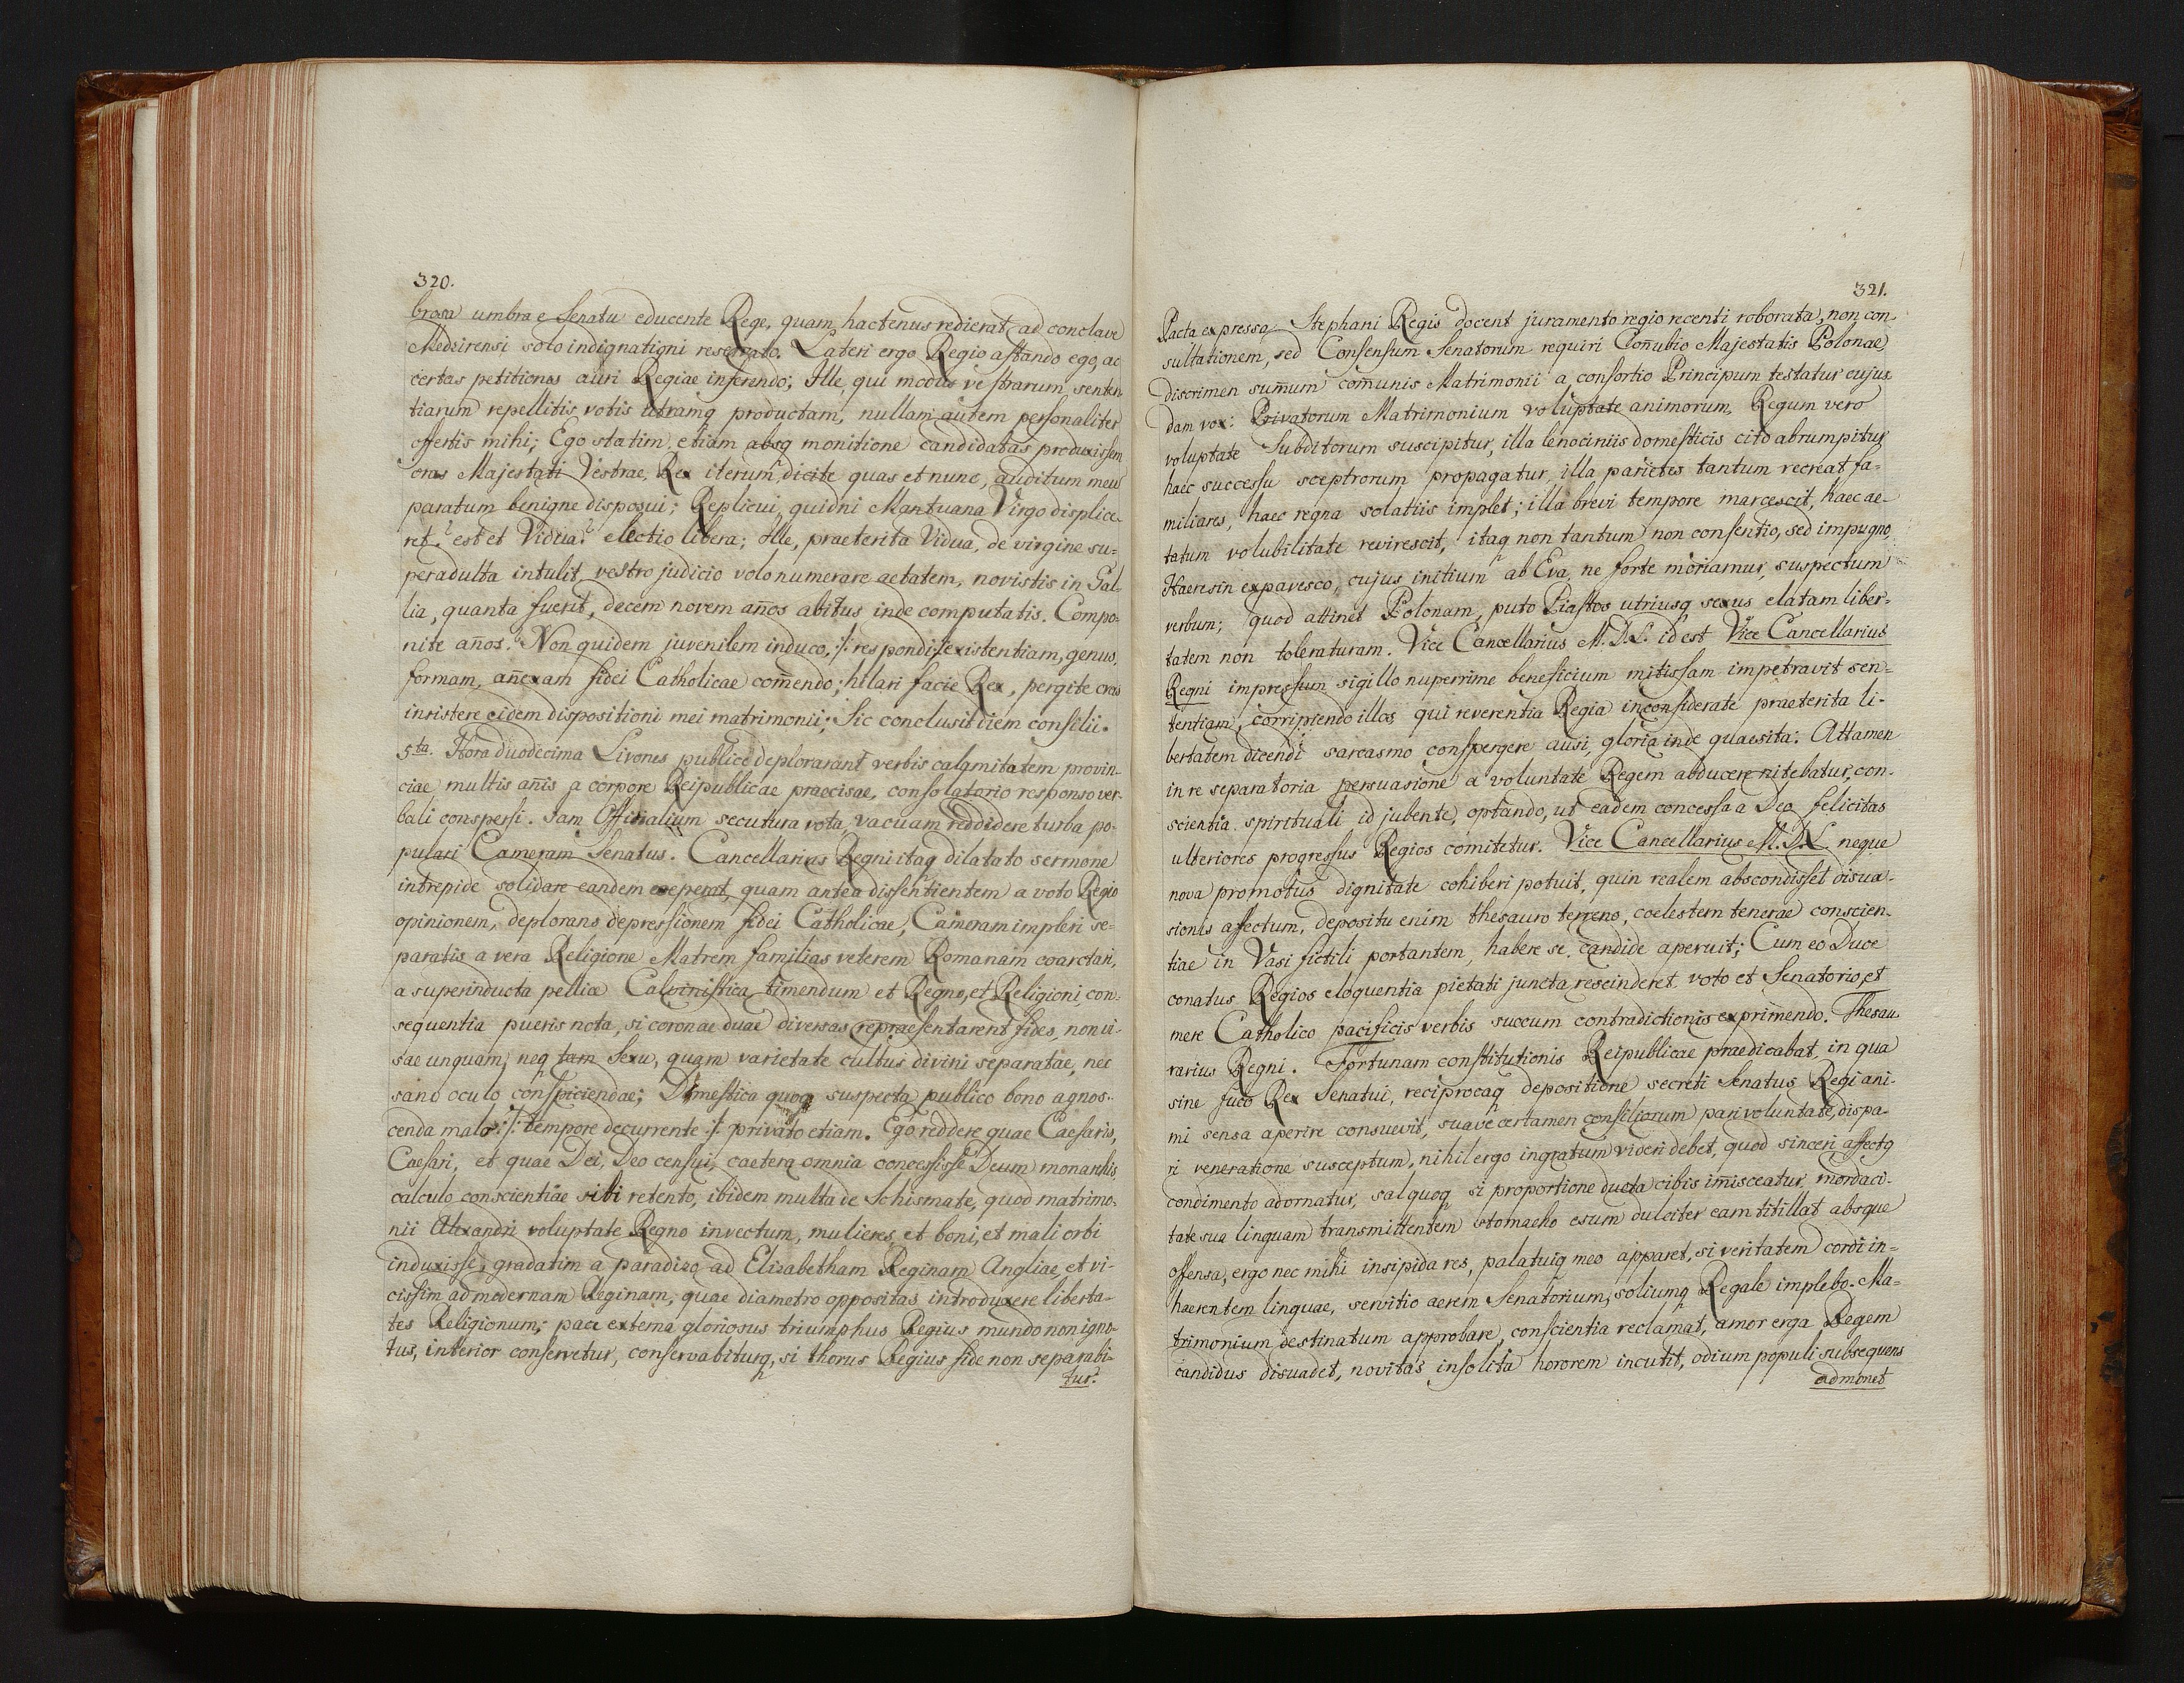 320.
brosa umbra e Senatu educente Rege, quam hactenus redierat ad conclave
Medzirensi solo indignationi reserrato. Lateri ergo Regio astando ego, ac
certas petitiones auri Regiae inferendo; Ille, qui modus vestrarum senten
tiarum repellitis, votis utramq productam, nullam autem personaliter
offertis mihi; Ego statim, etiam absq monitione candidatas produxissem
cras Majestati Vestrae, Rex iterum, dicite quas et nunc, auditum meu
paratum benigne disposui; Replicui, quidni Mantuana Virgo displice-
ret? est et Vidua? electio libera; Ille, praeterita Vidua, de virgine su=
peradulta intulit, vestro judicio volo numerare aetatem, novistis in Gal-
lia, quanta fuerit, decem novem an̄os abitus inde computatis. Compo-
nite an̄os? Non quidem juvenilem induco, ⁒ respondi ⁒ existentiam, genus,
formam, an̄exam fidei Catholicae com̄endo; hilari facie Rex, pergite cras
insistere eidem dispositioni mei matrimonii; Sic conclusit diem consilii.
5ta. Hora duodecima Livones publice deplorarant verbis calamitatem provin-
ciae multis an̄is a corpore Reipublicae praecisae, consolatorio responso ver-
bali conspersi. Jam Officialium secutura vota, vacuam reddidere turba po-
pulari Cameram Senatus. Cancellarius Regni itaq dilatato sermone
intrepide solidare eandem coeperat, quam antea dissentientem a voto Regio
opinionem, deplorans depressionem fidei Catholicae, Cameram impleri se=
paratis a vera Religione Matrem familias veterem Romanam coarctari,
a superinducta pellice Calvinistica timendum et Regno, et Religioni con-
sequentia pueris nota, si coronae duae diversas repraesentarent fides, non vi-
sae unquam, neq tam Sexu, quam varietate cultus divini separatae, nec
sano oculo conspiciendae; Domestica quoq suspecta publico bono agnos-
cenda mala ⁒ tempore decurrente ⁒ privato etiam. Ego reddere quae Caesaris,
Caesari, et quae Dei, Deo censui, caetera omnia concessisse Deum monarchis,
calculo conscientiae sibi retento, ibidem multa de Schismate, quod matrimo-
nii Alexandri voluptate Regno invectum, mulieres, et boni, et mali orbi
induxisse, gradatim a paradizo ad Elizabetham Reginam Angliae, et vi-
cissim ad modernam Reginam, quae diametro oppositas introduxere liberta-
tes Religionum; pace externa gloriosus triumphus Regius mundo non igno-
tus, interior conservetur, conservabiturq, si thorus Regius fide non separabi-
tur.
321.
Pacta expressa Stephani Regis docent juramento regio recenti roborata, non con-
sultationem, sed Consensum Senatorum requiri Con̄ubio Majestatis Polonae,
discrimen sum̄um com̄unis Matrimonii a consortio Principum testatur cujus
dam vox: Privatorum Matrimonium voluptate animorum, Regum vero
voluptate Subditorum suscipitur, illa lenociniis domesticis cito abrumpitur
haec successu sceptrorum propagatur, illa parietes tantum recreat fa-
miliares, haec regna solatiis implet; illa brevi tempore marcescit, haec ae-
tatum volubilitate revirescit, itaq non tantum non consentio, sed impugno,
Haeresin expavesco, cujus initium ab Eva, ne forte moriamur, suspectum
verbum; quod attinet Polonam, puto Piastos utriusq sexus elatam liber-
tatem non toleraturam. Vice Cancellarius M.D.L. id est Vice Cancellarius
Regni impressum sigillo nuperrime beneficium mitissam impetravit sen=
tentiam, corripiendo illos, qui reverentia Regia inconsiderate praeterita li-
bertatem dicendi sarcasmo conspergere ausi, gloria inde quaesita: Attamen
in re separatoria persuasione a voluntate Regem abducere nitebatur, con-
scientia spirituali id jubente, optando, ut eadem concessa a Deo felicitas
ulteriores progressus Regios comitetur. Vice Cancellarius M.D.L. neque
nova promotus dignitate cohiberi potuit, quin realem abscondisset disua-
sionis affectum, depositu enim thesauro terreno, coelestem tenerae conscien-
tiae in Vasi fictili portantem, habere se candide aperuit; Cum eo Duce
conatus Regios eloquentia pietati juncta rescinderet voto et Senatorio, et
mere Catholico pacificis verbis succum contradictionis exprimendo. Thesau
rarius Regni. Fortunam constitutionis Reipublicae praedicabat, in qua
sine fuco Rex Senatui, reciprocaq depositione secreti Senatus Regi ani-
mi sensa aperire consuevit, suave certamen consiliorum pari voluntate, dispa-
ri veneratione susceptum, nihil ergo ingratum videri debet, quod sinceri affectq
condimento adornatur, sal quoq si proportione ducta cibis im̄isceatur, mordaci-
tate sua linguam transmittentem stomacho esum dulciter eam titillat absque
offensa, ergo nec mihi insipida res, palatuiq meo apparet, si veritatem cordi in=
haerentem linguae, servitio aerem Senatorium, soliumq Regale implebo. Ma=
trimonium destinatum approbare, conscientia reclamat, amor erga Regem
candidus disuadet, novitas insolita hororem incutit, odium populi subsequens
admonet